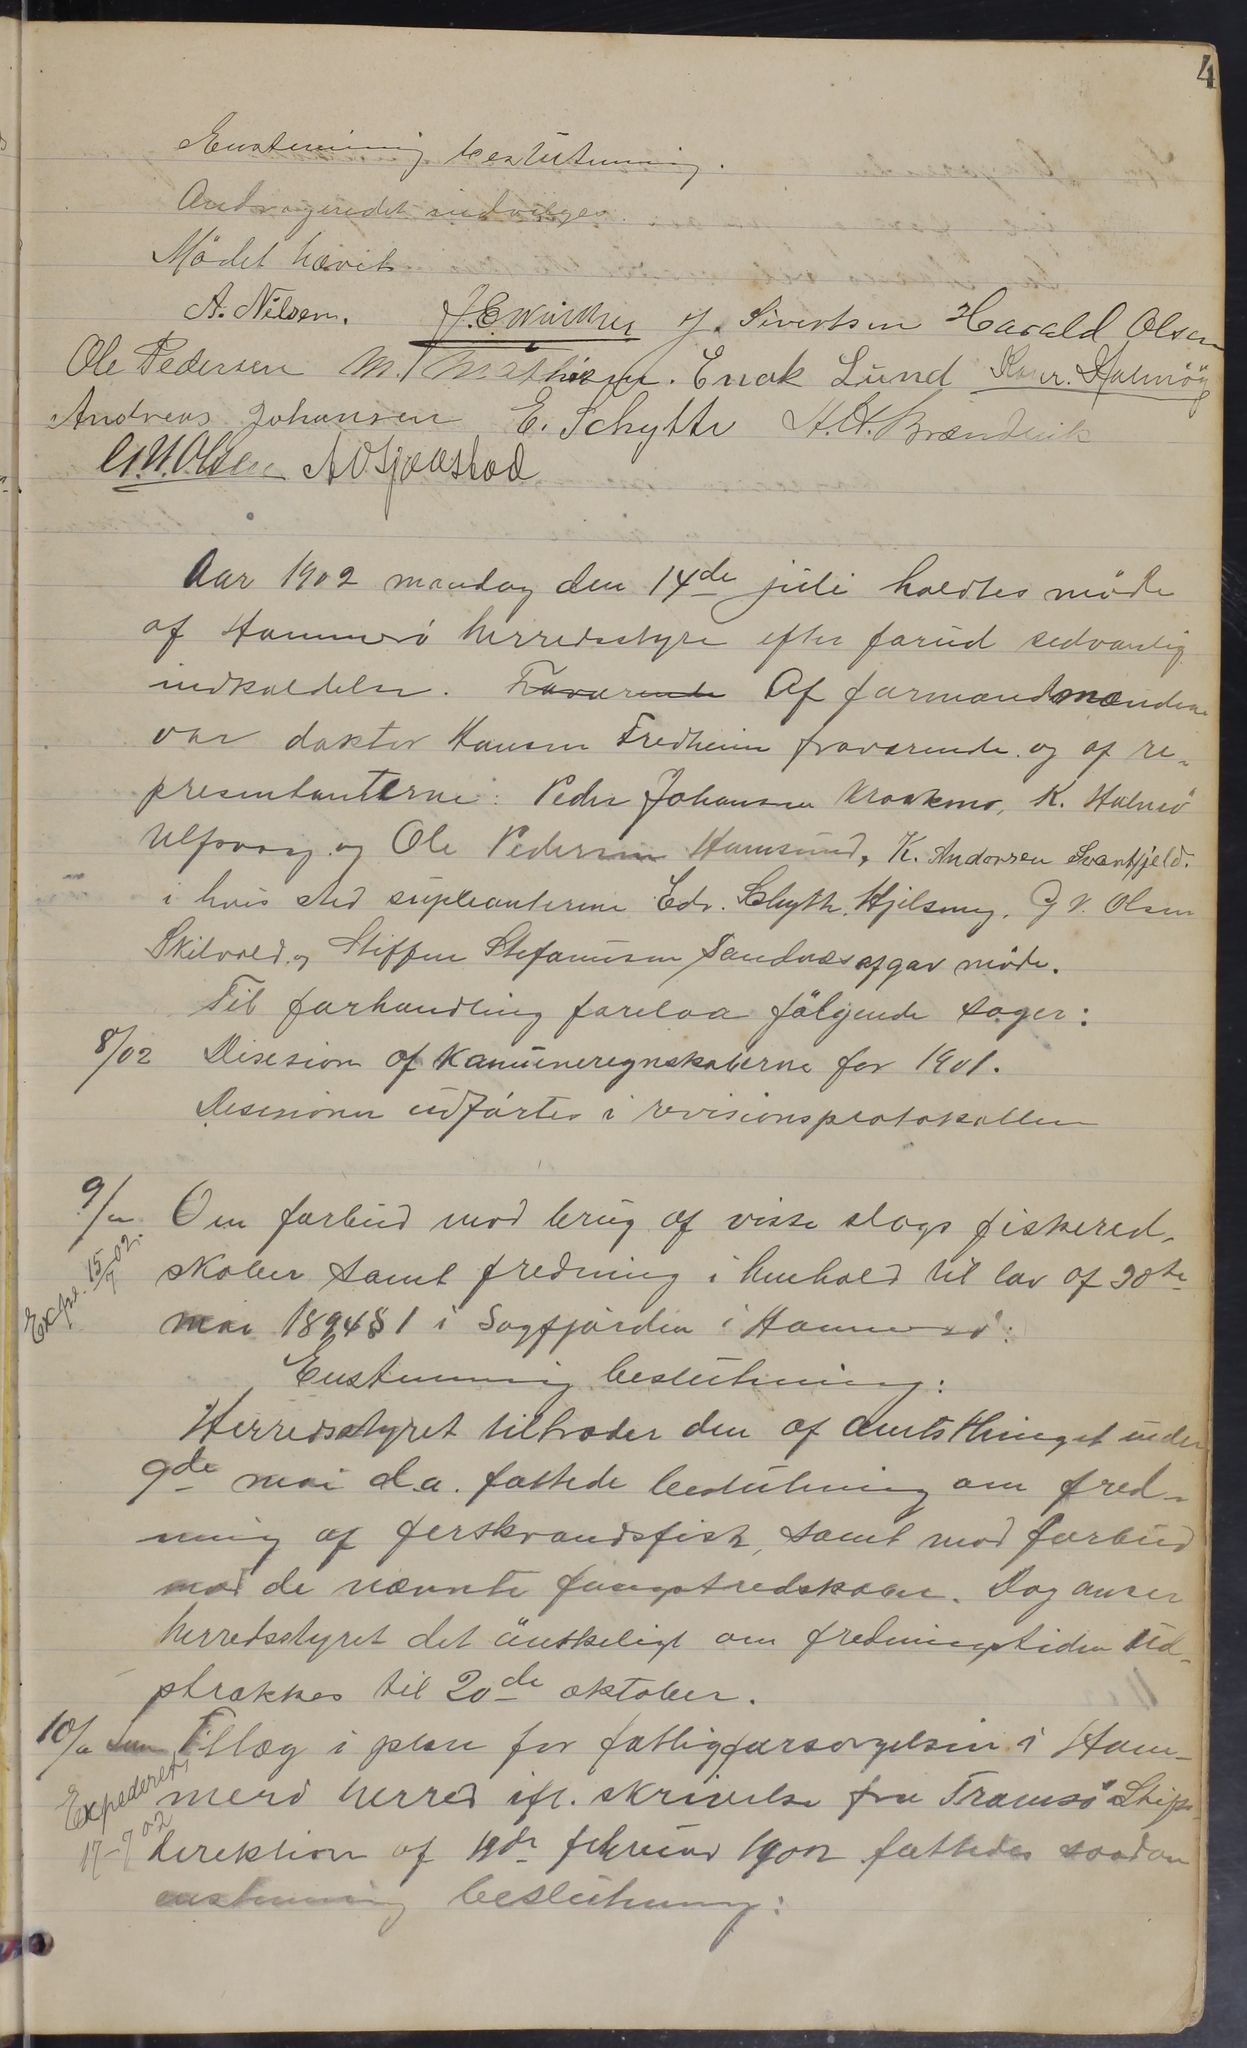 4
Enstemmig beslutning.
Andragendet indvilges.
Mödet hævet
A. Nilsen. J. Sivertsen Harald Olsen
Ole Pedersen M. Mathisen. Enok Lund Konr. Halmöy
Andreas Johansen E. Schytte H. H. Brændvik
G. V. Olsen A O Sjaastad
Aar 1902 mandag den 14de juli holdtes möde
af Hammerö herredsstyre efter forud sedvanlig
indkaldelse. Fraværende Af formandmændene
var doktor Hansen Fredheim fraværende og af re-
presentanterne: Peder Johansen Kraakmo, K. Halmö
Ulfsvaag og Ole Pedersen Hamsund, K. Andorsen Svartfjeld.
i hvis sted supleanterne Edv. Schytte, G V. Olsen
Skilvold og Steffen Stefanusen Sandnæs afgav möde.
Til forhandling forelaa fölgende sager:
8/02 Disesion af Kamuneregnskaberne for 1901.
Desisionen udförtes i revisionsprotokollen
9/02 Om forbud mod brug af visse slags fiskered-
Expe. 15/7 02.
skaber samt fredning i henhold til lov af 28de
mai 1894 § 1 i Sagfjorden i Hammerö:
Enstemmig beslutning:
Herredsstyret tiltræder den af amtsthinget under
9de mai d.a. fattede beslutning om fred-
ning af ferskvandsfisk, samt mod forbud
mod de nævnte fangstredskaber. Dog anser
herredsstyret det önskeligt om fredningstiden ud-
strækkes til 20de oktober.
10/02 Tillæg i plan for fattigforsorgelsen i Ham-
Expederet,
merö herred ifl. skrivelse fra Tromsö Stifts-
17-7 02
direktion af 19de februar 1902 fattedes saadan
enstemmig beslutning: